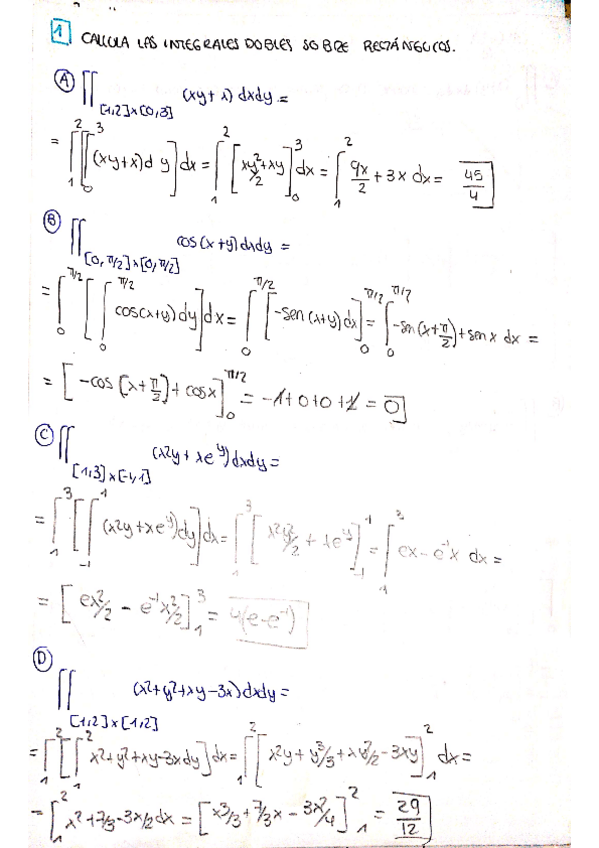 1. CALCULA LAS INTEGRALES DOBLES SOBRE RECTÁNGULOS.
A) ∬[1,2]x[0,3] (xy + x) dxdy =
= ∫₁² [∫₀³ (xy+x)dy] dx = ∫₁² [xy²/2 + xy]₀³ dx = ∫₁² 9x/2 + 3x dx = 45/4
B) ∬[0,π/2]x[0,π/2] cos(x+y)dxdy =
= ∫₀^π/2 [∫₀^π/2 cos(x+y)dy] dx = ∫₀^π/2 [-sen(x+y)dx]₀^π/2 = ∫₀^π/2 -sen(x+π/2) + sen x dx =
= [-cos(x+π/2) + cosx]₀^π/2 = -1+0+0+1 = 0
C) ∬[1,3]x[-1,1] (x²y + xe^y)dxdy =
= ∫₁³ [∫₋₁¹ (x²y + xe^y)dy] dx = ∫₁³ [x²y²/2 + xe^y]₋₁¹ = ∫₁³ ex - e⁻¹x dx =
= [ex²/2 - e⁻¹x²/2]₁³ = 4(e-e⁻¹)
D) ∬[1,2]x[1,2] (x²+y²+xy-3x)dxdy =
= ∫₁² [∫₁² x²+y²+xy-3xdy] dx = ∫₁² [x²y + y³/3 + xy²/2 - 3xy]₁² dx =
= ∫₁² x² + 7/3 - 3x/2 dx = [x³/3 + 7/3x - 3x²/4]₁² = 29/12